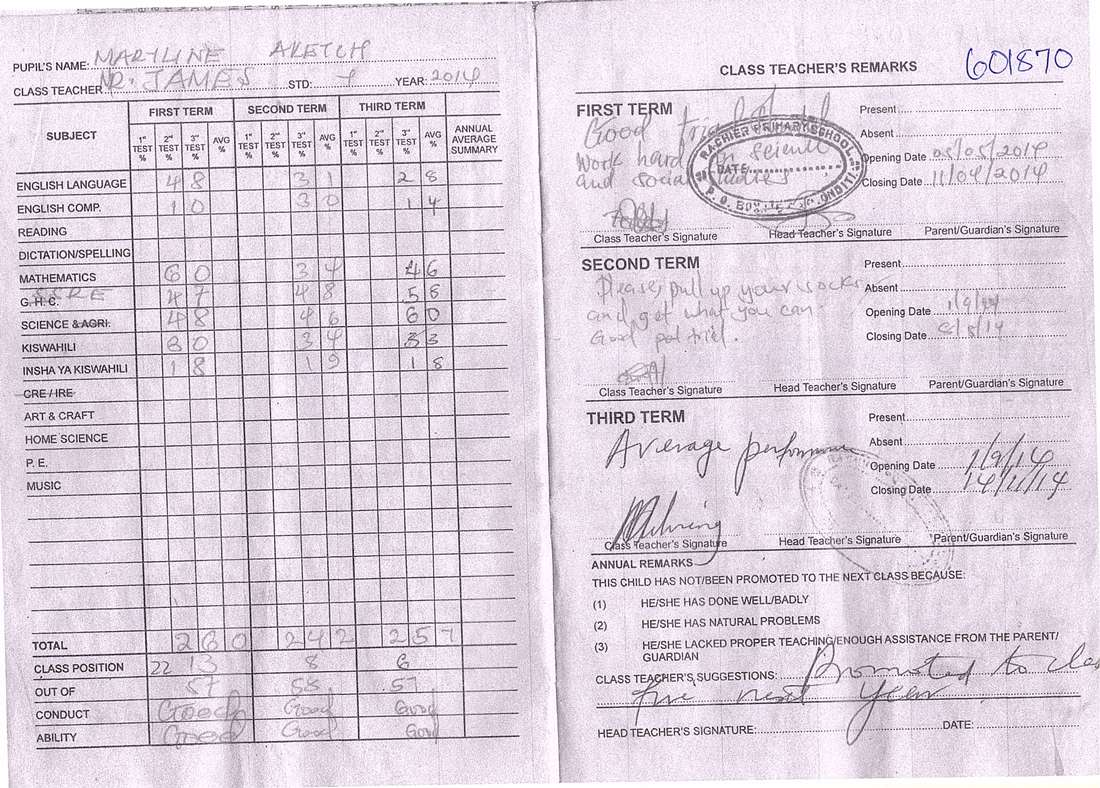 PUPIL'S NAME: MARYLINE AKETCH
CLASS TEACHER MR. JAMES STD: YEAR: 2014
SUBJECT FIRST TERM SECOND TERM THIRD TERM ANNUAL AVERAGE SUMMARY
1st TEST % 2nd TEST % 3rd TEST % AVG % 1st TEST % 2nd TEST % 3rd TEST % AVG % 1st TEST % 2nd TEST % 3rd TEST % AVG %
ENGLISH LANGUAGE 48 31 28
ENGLISH COMP. 10 30 14
READING
DICTATION/SPELLING
MATHEMATICS 60 34 46
G.H.C. 47 48 58
SCIENCE & AGRI. 48 46 60
KISWAHILI 30 34 33
INSHA YA KISWAHILI 18 19 18
CRE / IRE
ART & CRAFT
HOME SCIENCE
P. E.
MUSIC
TOTAL 260 242 257
CLASS POSITION 22 13 8 6
OUT OF 57 58 57
CONDUCT Good Good Good
ABILITY Good Good Good
CLASS TEACHER'S REMARKS 601870
FIRST TERM
Good trial
Work hard in science
and social studies
RACHIER PRIMARY SCHOOL
DATE
P. O. BOX
Present
Absent
Opening Date 05/05/2014
Closing Date 11/04/2014
Class Teacher's Signature Head Teacher's Signature Parent/Guardian's Signature
SECOND TERM
Please, pull up your socks
and get what you can.
Good
Present
Absent
Opening Date 1/9/14
Closing Date
Class Teacher's Signature Head Teacher's Signature Parent/Guardian's Signature
THIRD TERM
Average performance
Present
Absent
Opening Date 1/9/14
Closing Date 14/11/14
Class Teacher's Signature Head Teacher's Signature Parent/Guardian's Signature
ANNUAL REMARKS
THIS CHILD HAS NOT/BEEN PROMOTED TO THE NEXT CLASS BECAUSE:
(1) HE/SHE HAS DONE WELL/BADLY
(2) HE/SHE HAS NATURAL PROBLEMS
(3) HE/SHE LACKED PROPER TEACHING/ENOUGH ASSISTANCE FROM THE PARENT/
GUARDIAN
CLASS TEACHER'S SUGGESTIONS: Promoted to clas
five next year
HEAD TEACHER'S SIGNATURE: DATE: